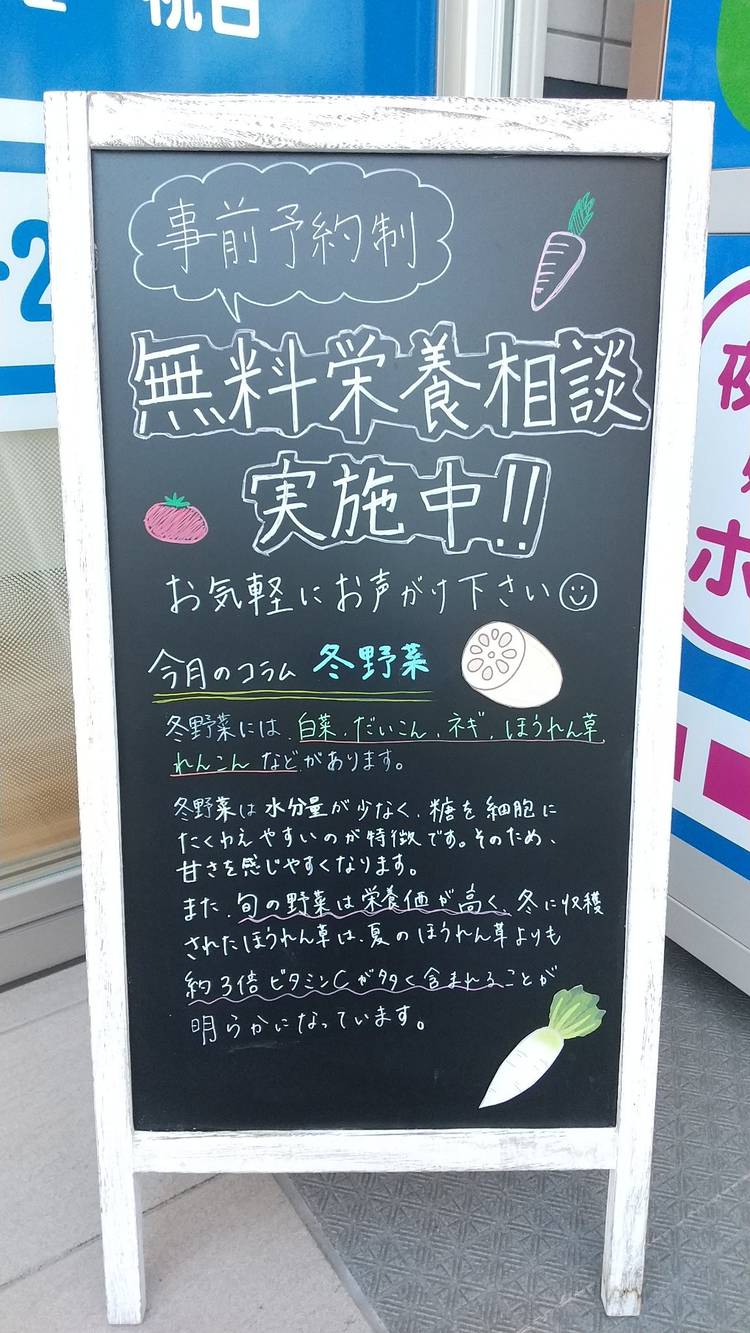 祝日
-2
事前予約制
無料栄養相談
実施中!!
お気軽にお声がけ下さい
今月のコラム 冬野菜
冬野菜には、白菜、だいこん、ネギ、ほうれん草
れんこんなどがあります。
冬野菜は水分量が少なく、糖を細胞に
たくわえやすいのが特徴です。そのため、
甘さを感じやすくなります。
また、旬の野菜は栄養価が高く、冬に収穫
されたほうれん草は、夏のほうれん草よりも
約3倍ビタミンCが多く含まれることが
明らかになっています。
夜
ホ